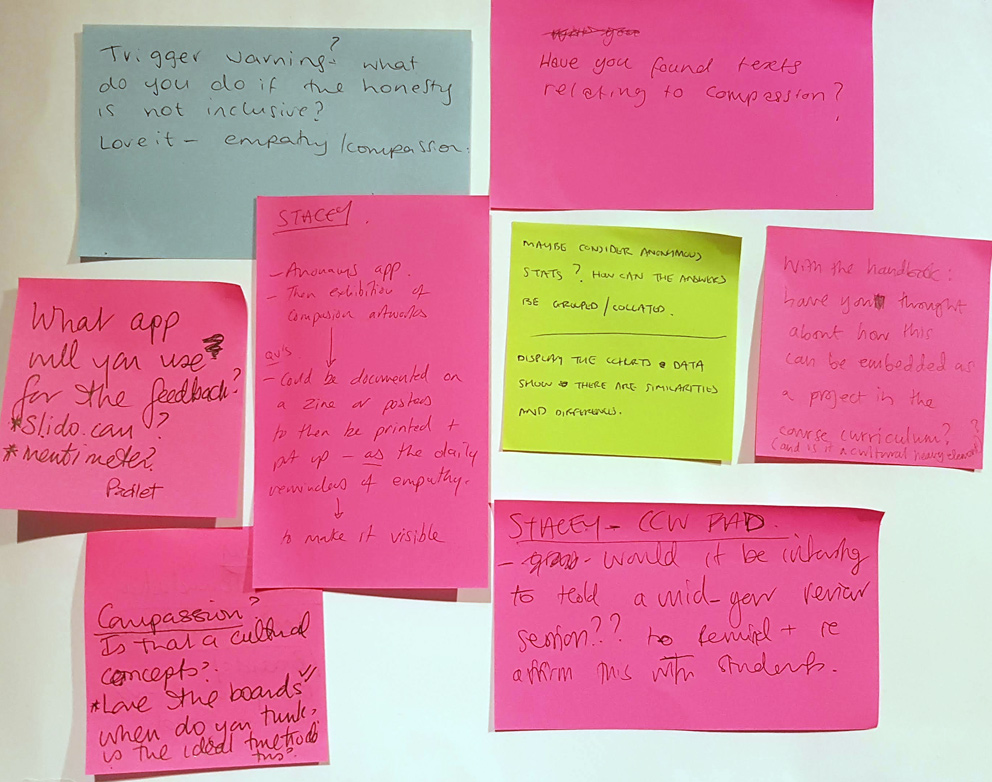 Trigger warning? what
do you do if the honesty
is not inclusive?
Love it – empathy/compassion.
Have you found texts
relating to compassion?
STACEY.
– Anonyms app.
– Then exhibition of
Compasion artworks
↓
qu's
– Could be documented on
a zine or posters
to then be printed +
put up – as the daily
reminders of empathy.
↓
to make it visible
MAYBE CONSIDER ANONYMOUS
STATS? HOW CAN THE ANSWERS
BE GROUPED/COLLATED.
DISPLAY THE CHARTS & DATA
SHOW THERE ARE SIMILARITIES
AND DIFFERENCES.
With the handbook:
have you thought
about how this
can be embedded as
a project in the
course curriculum?
(and is it a cultural heavy element)?
What app
will you use
for the feedback?
*Slido.com?
*mentimeter?
Padlet
Compassion?
Is that a cultural
concepts?
*Love the boards
when do you think,
is the ideal method
this?
STACEY – CCW PAD.
– would it be intersting
to hold a mid-year review
session?? to remind + re
affirm this with students.